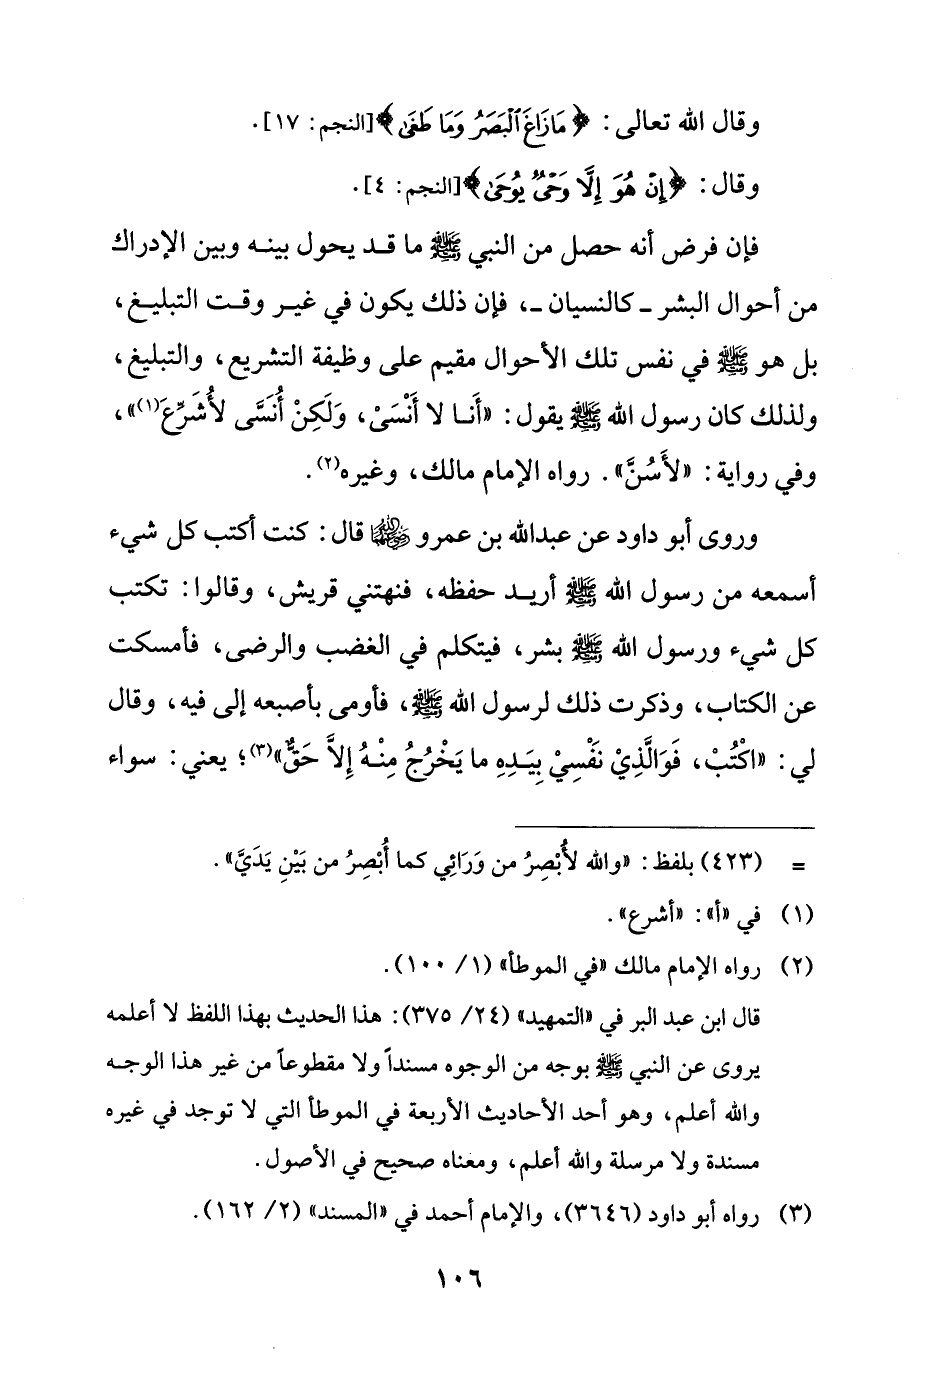 وقال الله تعالى: ﴿مَا زَاغَ ٱلْبَصَرُ وَمَا طَغَىٰ﴾[النجم: ١٧].
وقال: ﴿إِنْ هُوَ إِلَّا وَحْىٌ يُوحَىٰ﴾[النجم: ٤].
فإن فرض أنه حصل من النبي ﷺ ما قد يحول بينه وبين الإدراك
من أحوال البشر ـ كالنسيان ـ، فإن ذلك يكون في غير وقت التبليغ،
بل هو ﷺ في نفس تلك الأحوال مقيم على وظيفة التشريع، والتبليغ،
ولذلك كان رسول الله ﷺ يقول: «أَنا لا أَنْسَىْ، وَلَكِنْ أُنَسَّى لأُشَرِّعَ(١)»،
وفي رواية: «لأَسُنَّ». رواه الإمام مالك، وغيره(٢).
وروى أبو داود عن عبدالله بن عمرو رضي الله عنهما قال: كنت أكتب كل شيء
أسمعه من رسول الله ﷺ أريد حفظه، فنهتني قريش، وقالوا: تكتب
كل شيء ورسول الله ﷺ بشر، فيتكلم في الغضب والرضى، فأمسكت
عن الكتاب، وذكرت ذلك لرسول الله ﷺ، فأومى بأصبعه إلى فيه، وقال
لي: «اكْتُبْ، فَوَالَّذِيْ نَفْسِيْ بِيَدِهِ ما يَخْرُجُ مِنْهُ إِلاَّ حَقٌّ»(٣)؛ يعني: سواء
= (٤٢٣) بلفظ: «والله لأُبْصِرُ من وَرَائِي كما أُبْصِرُ من بَيْنِ يَدَيَّ».
(١) في «أ»: «أشرع».
(٢) رواه الإمام مالك «في الموطأ» (١/ ١٠٠).
قال ابن عبد البر في «التمهيد» (٢٤/ ٣٧٥): هذا الحديث بهذا اللفظ لا أعلمه
يروى عن النبي ﷺ بوجه من الوجوه مسنداً ولا مقطوعاً من غير هذا الوجه
والله أعلم، وهو أحد الأحاديث الأربعة في الموطأ التي لا توجد في غيره
مسندة ولا مرسلة والله أعلم، ومعناه صحيح في الأصول.
(٣) رواه أبو داود (٣٦٤٦)، والإمام أحمد في «المسند» (٢/ ١٦٢).
١٠٦